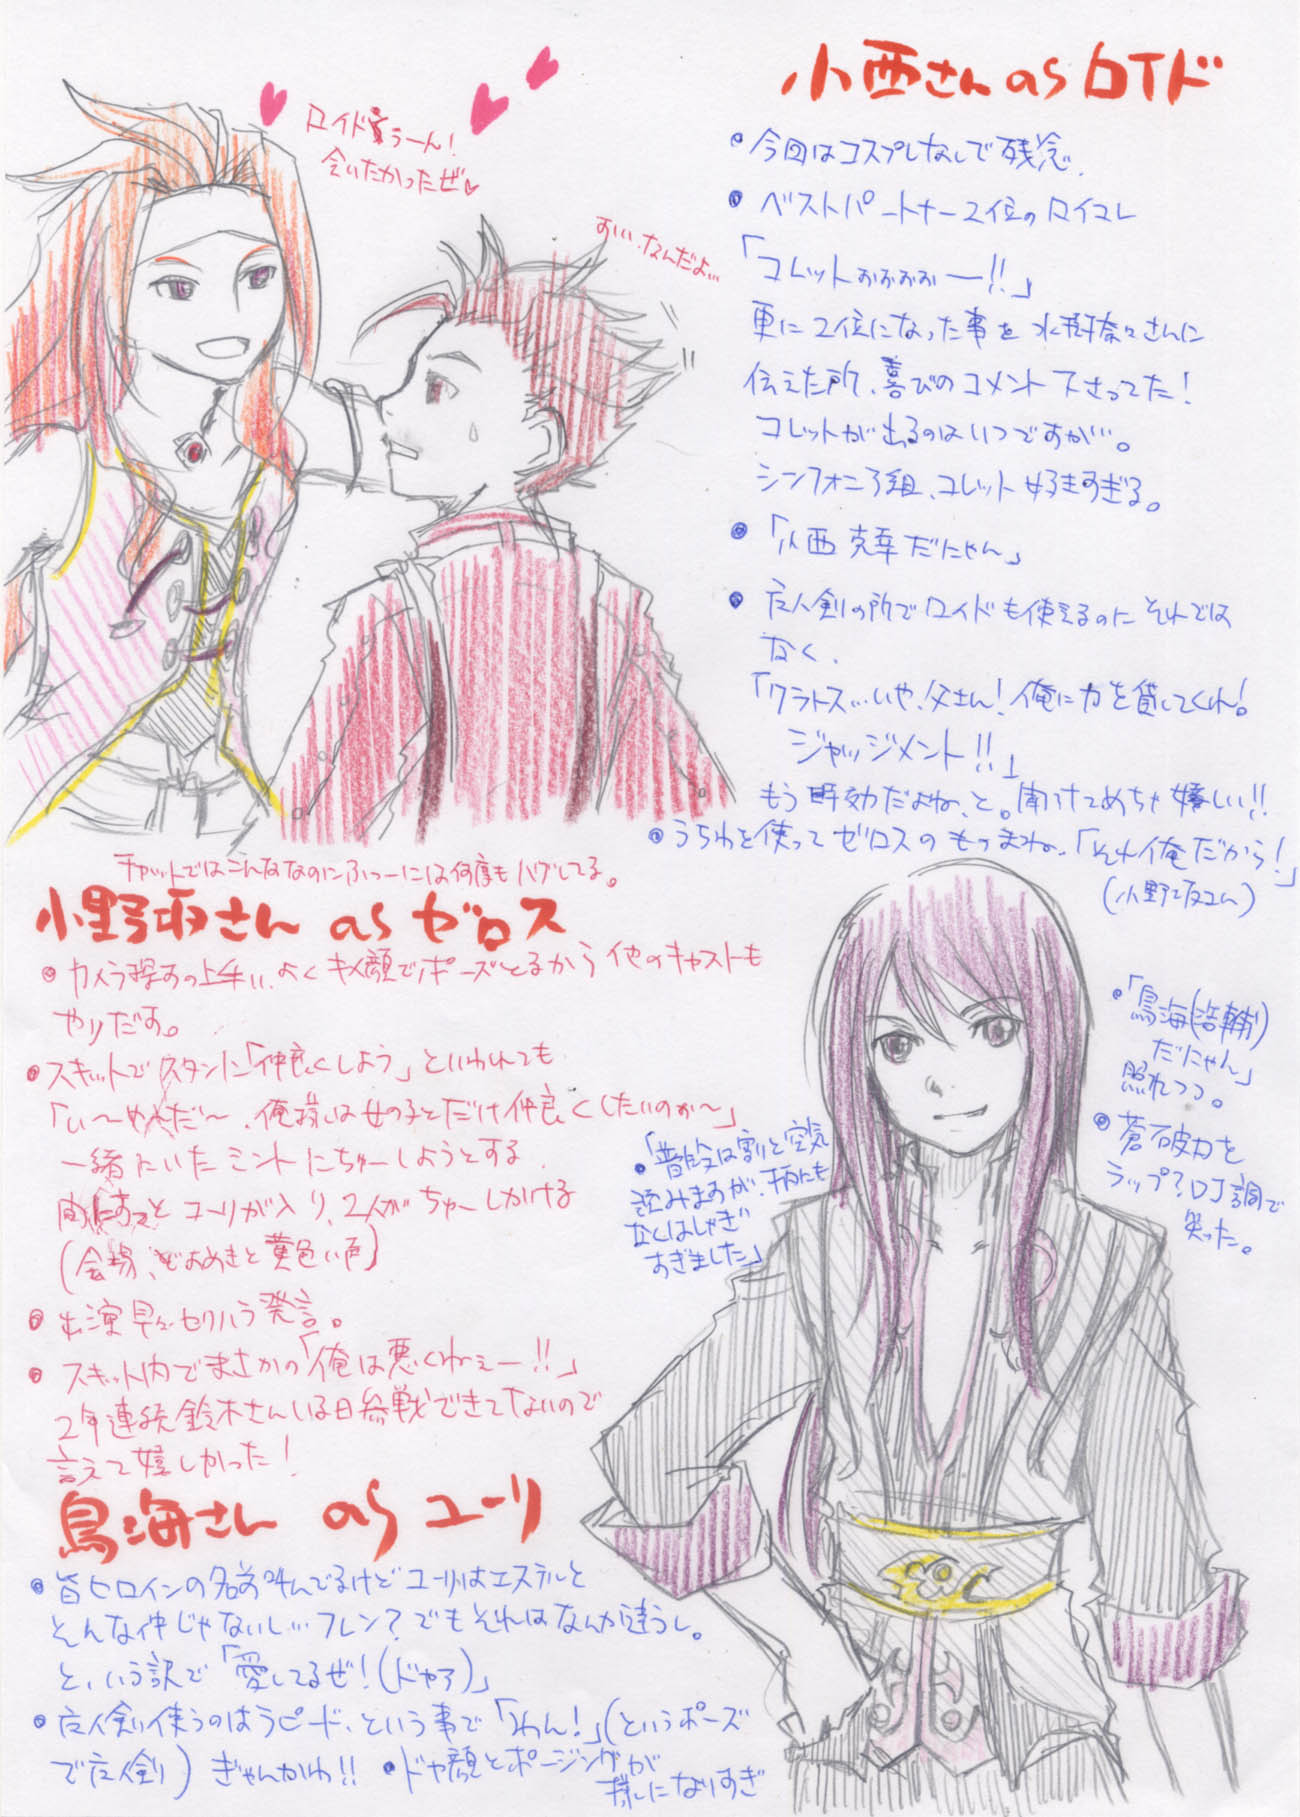 小西さん as ロイド
ロイドくぅーん!
会いたかったぜ♥
おいい、なんだよ…
・今回はコスプレなしで残念、
・ベストパートナー2位のロイコレ
「コレットぉぉぉぉー!!」
更に2位になった事を水樹奈々さんに
伝えた所、喜びのコメント下さってた!
コレットが出るのはいつですか…。
シンフォニア組、コレット好きすぎる。
・「小西克幸だにゃん」
・魔人剣の所でロイドも使えるのにそれでは
なく、
「クラトス…いや、父さん!俺に力を貸してくれ!
ジャッジメント!!」
もう時効だよね、と。聞けてめちゃ嬉しい!!
・うちわを使ってゼロスのものまね、「それ俺だから!」
(小野坂さん)
チャットではこんななのにふつーには何度もハグしてる。
小野坂さん as ゼロス
・カメラ探すの上手い、よくキメ顔でポーズとるから他のキャストも
やりだす。
・スキットでスタンに「仲良くしよう」といわれても
「い〜やだ〜、俺様は女の子とだけ仲良くしたいのか〜」
一緒にいたミントにちゅーしようとする
間にすっとユーリが入り、2人がちゅーしかける
(会場、どよめきと黄色い声)
・出演早々セクハラ発言。
・スキット内でまさかの「俺は悪くねぇー!!」
2年連続鈴木さんいる日参戦できてないので
言えて嬉しかった!
・「鳥海(浩輔)
だにゃん」
照れつつ。
・蒼破刃を
ラップ?DJ調で
笑った。
・「普段は割と空気
読みますが、柄にも
なくはしゃぎ
すぎました」
鳥海さん as ユーリ
・皆ヒロインの名前叫んでるけどユーリはエステルと
そんな仲じゃないし…フレン?でもそれはなんか違うし。
と、いう訳で「愛してるぜ!(ドヤァ)」
・魔人剣使うのはラピード、という事で「わん!」(というポーズ
で魔人剣) ぎゃんかわ!!
・ドヤ顔とポージングが
様になりすぎ